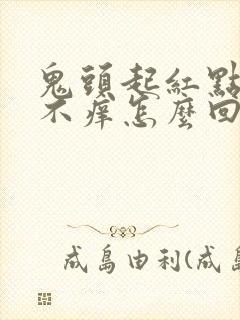 鬼頭起紅點
不癢怎麼回
成島由利(成島